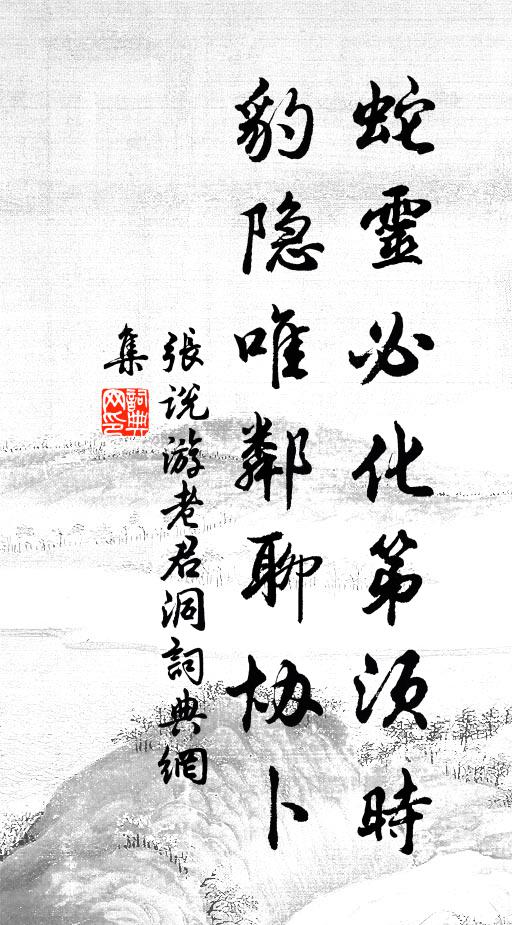 蛇靈必化第須時
豹隐唯鄰聊协卜
張说游老君洞詞典網
集
詞典网印